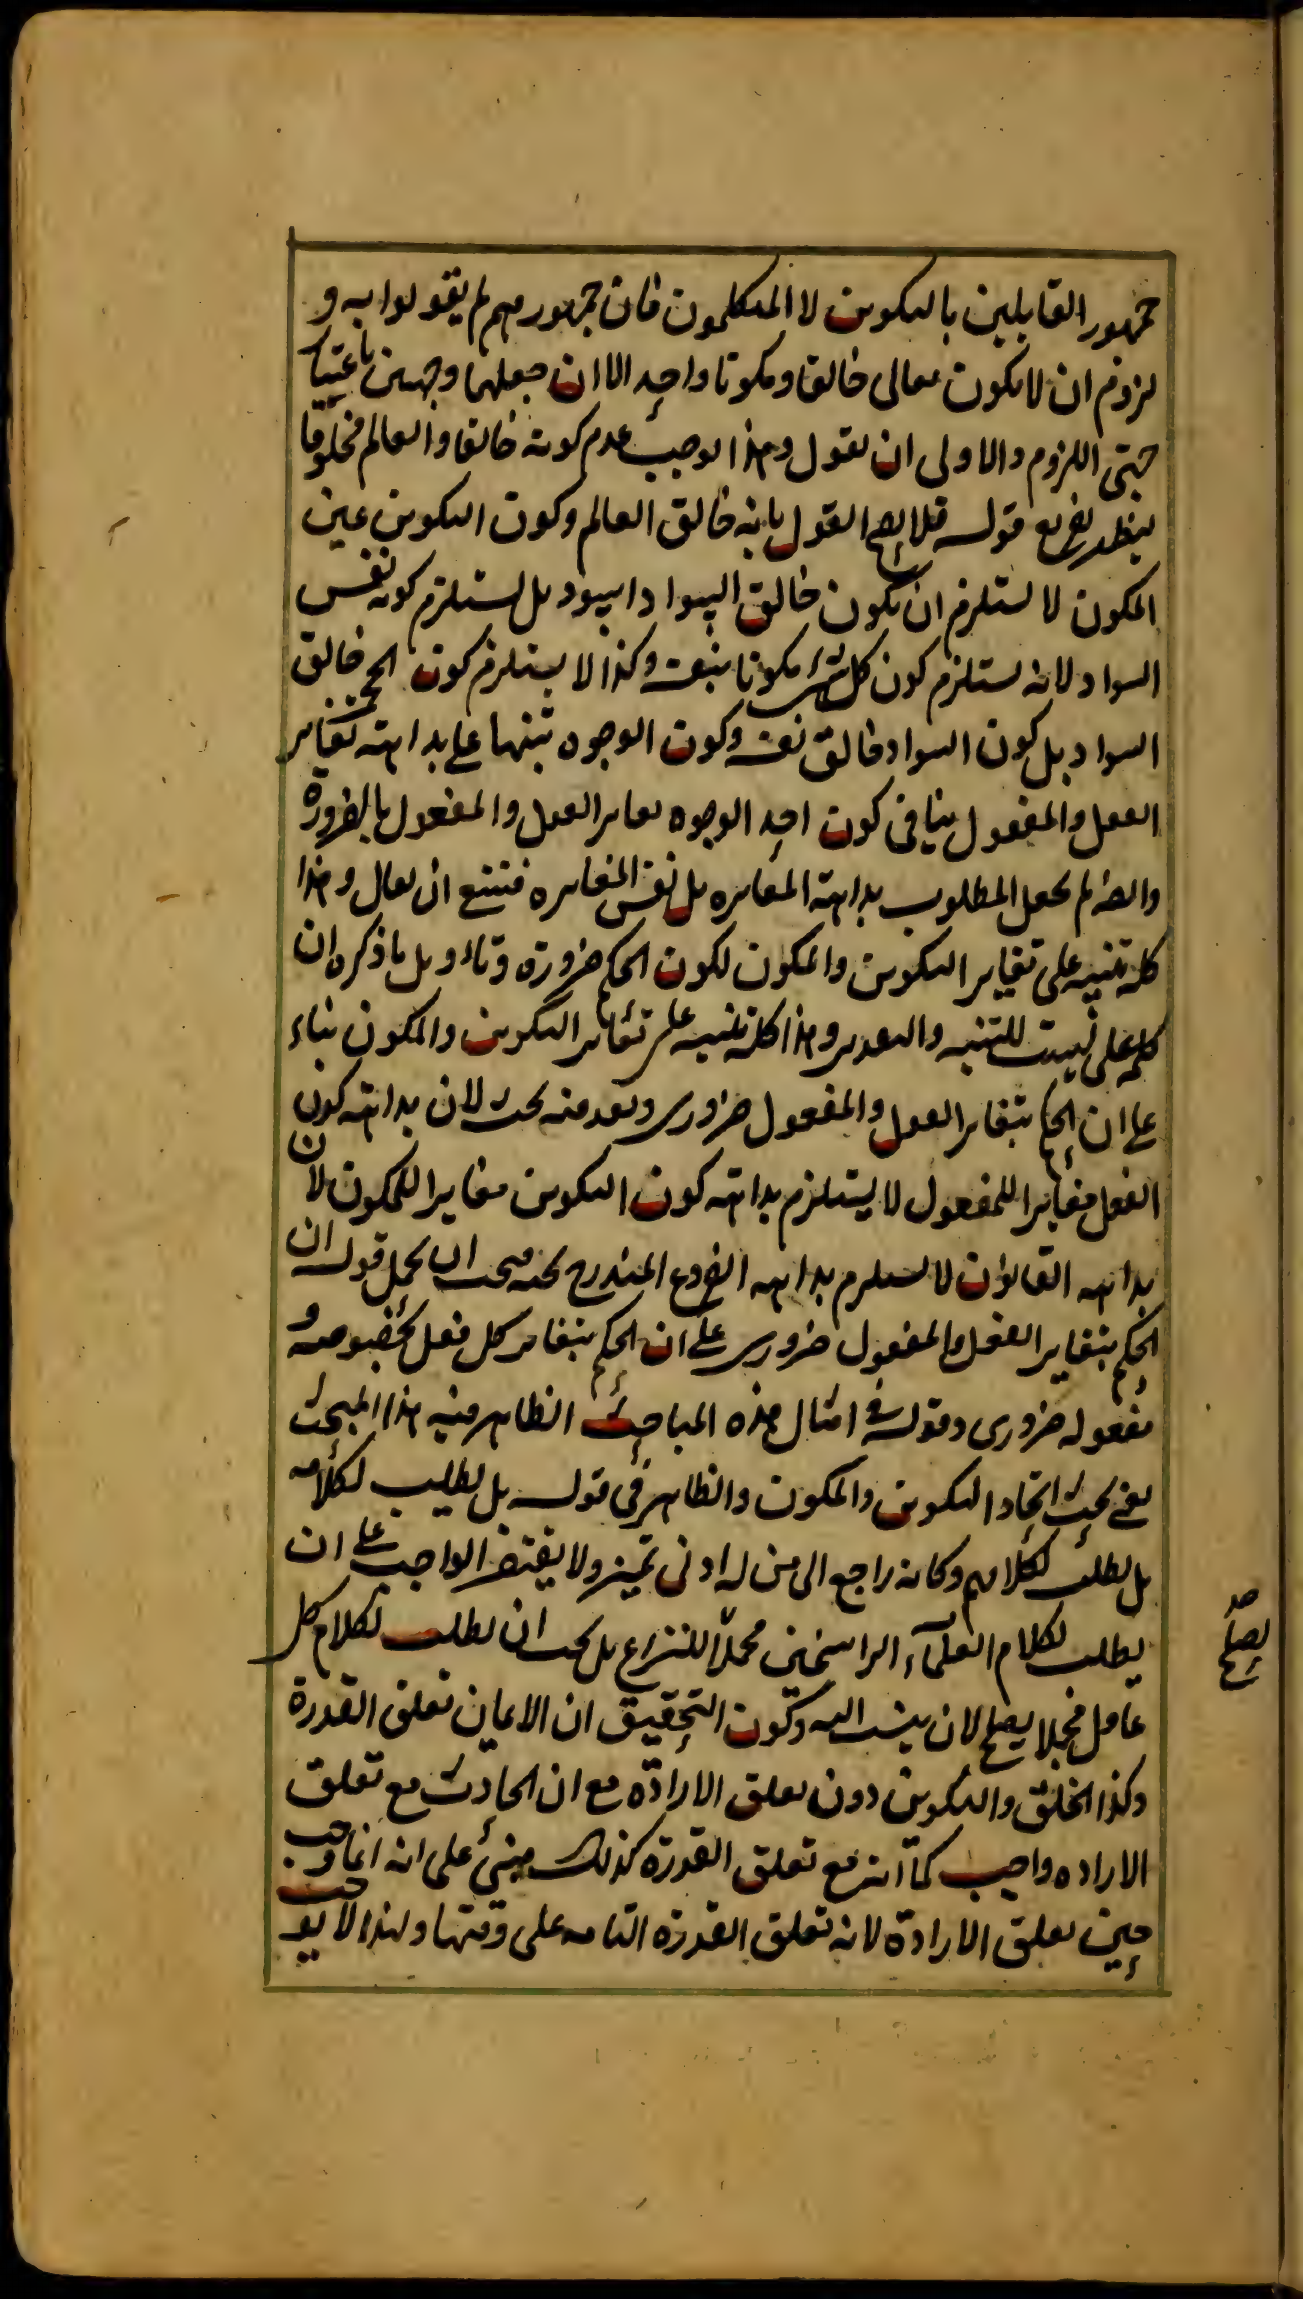 جمهور القايلين بالتكوين لا المتكلمون فان جمهورهم لم يقولوا به و
لزوم ان لا يكون تعالى خالقا ومكونا واحد الا ان جعلهما وجهين باعتبار
جهتى اللزوم والاولى ان يقول وهذا يوجب عدم كونه خالقا والعالم مخلوقا
ليظهر تفريع قوله فلا يصح القول بانه خالق العالم وكون التكوين عين
المكون لا يستلزم ان يكون خالق السواد اسود بل يستلزم كونه نفس
السواد لانه يستلزم كون كل شئ مكونا بنفسه وكذا لا يستلزم كون الحجر خالق
السواد بل كون السواد خالق نفسه وكون الوجوه تنبيها على بداهته تغاير
الفعل والمفعول ينافى كون احد الوجوه تغاير الفعل والمفعول بالضرورة
وايضا لم يجعل المطلوب بداهة المغايره بل نفس المغايره فتنبع ان يقال وهذا
كله تنبيه على تغاير التكوين والمكون لكون الحكم ضرورة وتاويل ما ذكره ان
كلمة على ليست للتنبيه والتقدير وهذا كله تنبيه على تغاير التكوين والمكون بناء
على ان الحكم بتغاير الفعل والمفعول ضرورى وبعد فيه بحث لان بداهته كون
الفعل مغايرا للمفعول لا يستلزم بداهته كون التكوين مغايرا للمكون لان
بداهه القانون لا يستلزم بداهه الفروع المندرج تحته فيجب ان يحمل قوله ان
الحكم بتغاير الفعل والمفعول ضرورى على ان الحكم بتغاير كل فعل بخصوصه و
مفعوله ضرورى وقوله فى امثال هذه المباحث الظاهر فيه هذا المبحث
يعنى بحث اتحاد التكوين والمكون والظاهر فى قوله بل يطلب لكلامه
بل يطلب لكلامهم وكانه راجع الى من له ادنى تميز ولا يقتضر الواجب على ان
يطلب لكلام العلمآء الراسخين محملا للنزاع بل يجب ان يطلب لكلام كل
عاقل محملا يصلح لان ينسب اليه وكون التحقيق ان الاعيان تعلق القدرة
وكذا الخلق والتكوين دون تعلق الارادة مع ان الحادث مع تعلق
الاراده واجب كما انه مع تعلق القدرة كذلك مبنئ على انه انما وجب
حين تعلق الارادة لانه تعلق القدرة التامه على وقتها ولهذا لا يوجب
يصلح